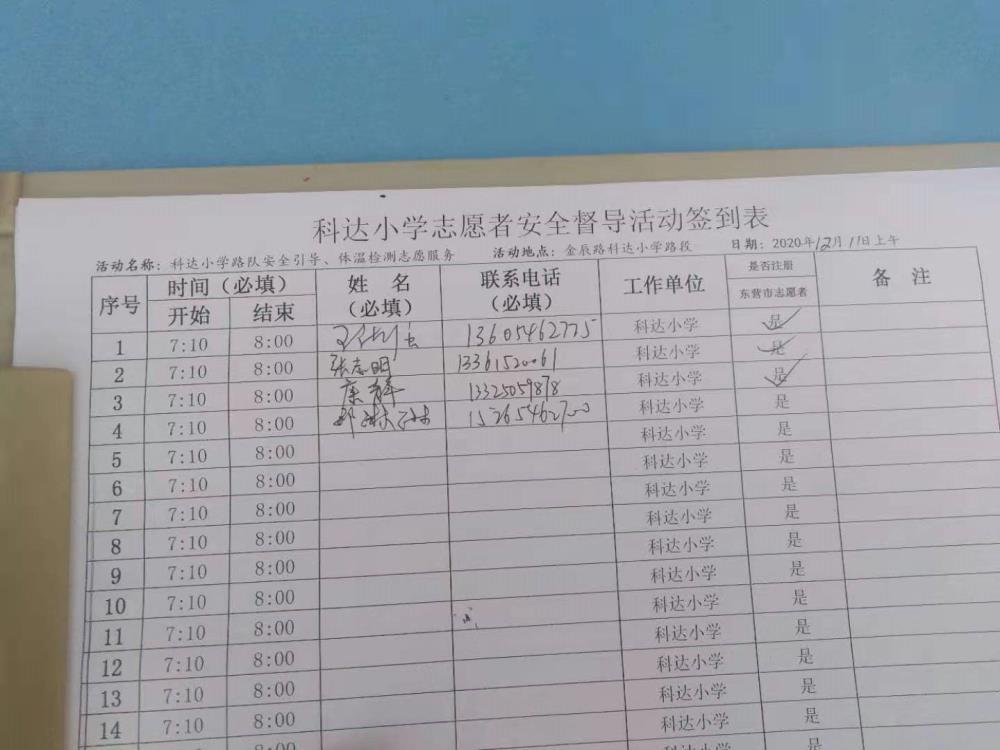 科达小学志愿者安全督导活动签到表
活动名称：科达小学路队安全引导、体温检测志愿服务 活动地点：金辰路科达小学路段 日期：2020年12月11日上午
序号 时间（必填） 姓 名（必填） 联系电话（必填） 工作单位 是否注册东营市志愿者 备 注
开始 结束
1 7:10 8:00 13605462775 科达小学 是
2 7:10 8:00 张志明 13361520061 科达小学 是
3 7:10 8:00 康 13325059878 科达小学 是
4 7:10 8:00 15265462700 科达小学 是
5 7:10 8:00 科达小学 是
6 7:10 8:00 科达小学 是
7 7:10 8:00 科达小学 是
8 7:10 8:00 科达小学 是
9 7:10 8:00 科达小学 是
10 7:10 8:00 科达小学 是
11 7:10 8:00 科达小学 是
12 7:10 8:00 科达小学 是
13 7:10 8:00 科达小学 是
14 7:10 8:00 科达小学 是
8:00 科达小学 是